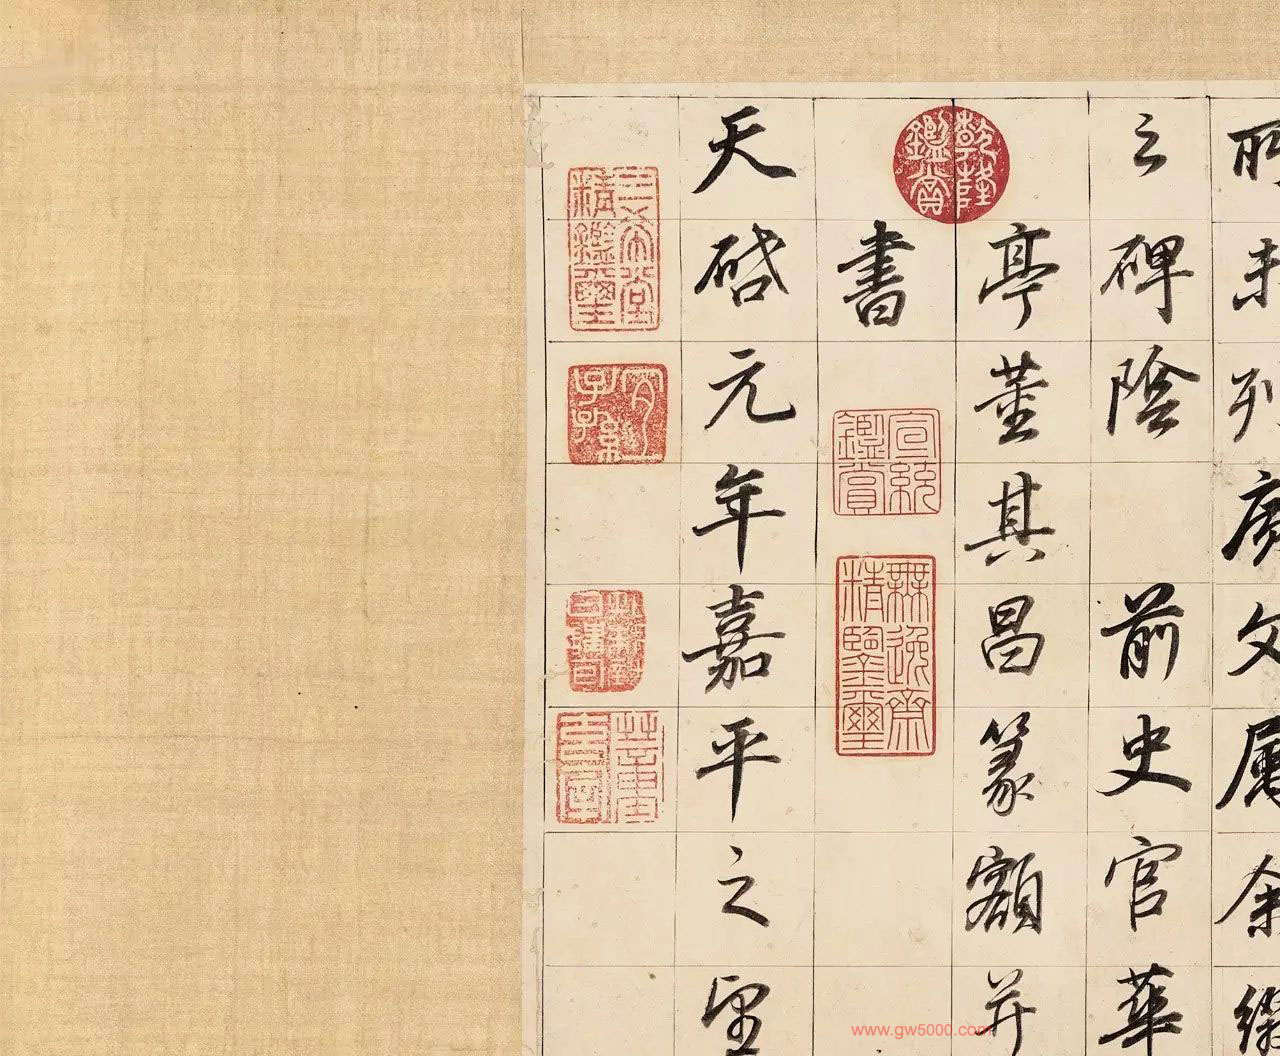 所未列廣文屬余綴
之碑陰 前史官華
亭董其昌篆額并
書
天啓元年嘉平之望
乾隆鑑賞
三希堂精鑑璽
宜子孫
宣統鑑賞
無逸齋精鑒璽
www.gw5000.com